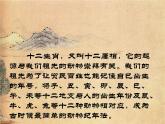 十二生肖，又叫十二属相，它的起
源与我们祖先的动物崇拜有关。据
记载，我们祖先为了让自己出生
的年号好记，将子、丑、寅、卯、
辰、巳、午、未、申、酉、戌、亥
十二地支分别与自己崇拜的鼠、
牛、虎、兔等十二种动物相对应，成为
古时简单易懂的动物纪年法。